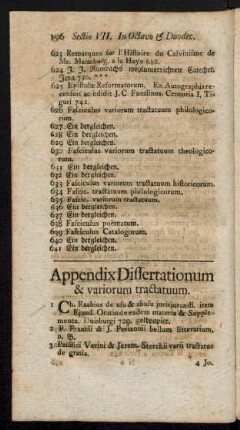 196 Sectio VII. In Octavo & Duodec.
623 Remarques sur l'Histoire du Calvinisme de
Mr. Maimbourg. a la Haye 682.
624 J. J. wolunterrichtete Catechet.
Jena 720.
625 Epistolæ Reformatorum. Ex Autographis re-
censuit ac edidit J. C. Fueslinus Centuria I. Ti-
guri 742.
626. Fasciculus variorum tractatuum philologico-
rum.
627. Ein dergleichen.
628. Ein dergleichen.
629 Ein dergleichen.
630 Fasciculus variorum tractatuum theologico-
rum.
631 Ein dergleichen.
632 Ein dergleichen.
633 Fasciculus variorum tractatuum historicorum.
634 Fascic. tractatuum philologicorum.
635 Fascic. variorum tractatuum.
636 Ein dergleichen.
637 Ein dergleichen.
638 Fasciculus poëmatum.
639 Fasciculus Catalogorum.
640 Ein dergleichen.
641 Ein dergleichen.
Appendix Dissertationum
& variorum tractatuum.
1 Ch. Raabius de usu & abusu jurisjurandi. item
Ejusd. Oratio de eadem materia & Supple-
menta. Duisburgi 729. geldpapier.
2 P. Francii & J. Perizonii bellum litterarium,
v. B.
3 Pacifici Verini & Jerem. Sterckii varii tractatus
de gratia.
4 Jo.